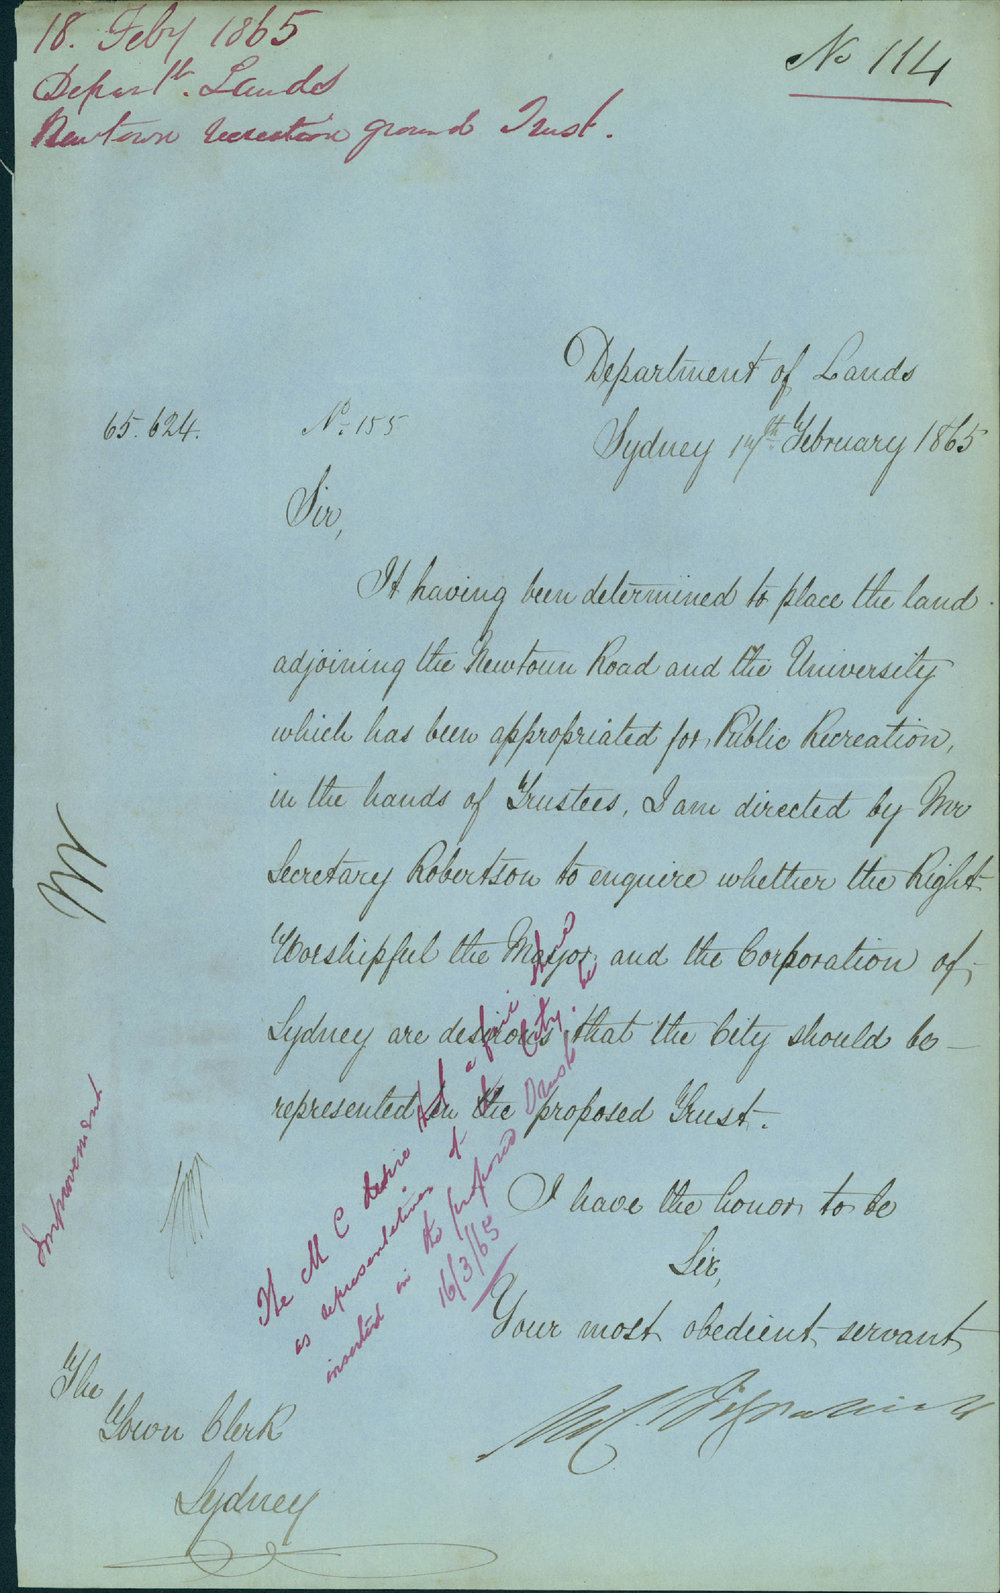 18. Feby 1865
Depart. Lands
Newtown recreation ground Trust.
No 114
Department of Lands
65.624. No. 155
Sydney 17th February 1865
Sir,
It having been determined to place the land
adjoining the Newtown Road and the University
which has been appropriated for Public Recreation,
in the hands of Trustees, I am directed by Mr
Secretary Robertson to enquire whether the Right
Worshipful the Mayor and the Corporation of
Sydney are desirous that the City should be
represented in the proposed Trust.
I have the honor to be
Sir,
Your most obedient servant
The
Town Clerk
Sydney
Improvement
The M C desire that a
as representative of the City be
inserted in the proposed Trust
16/3/65